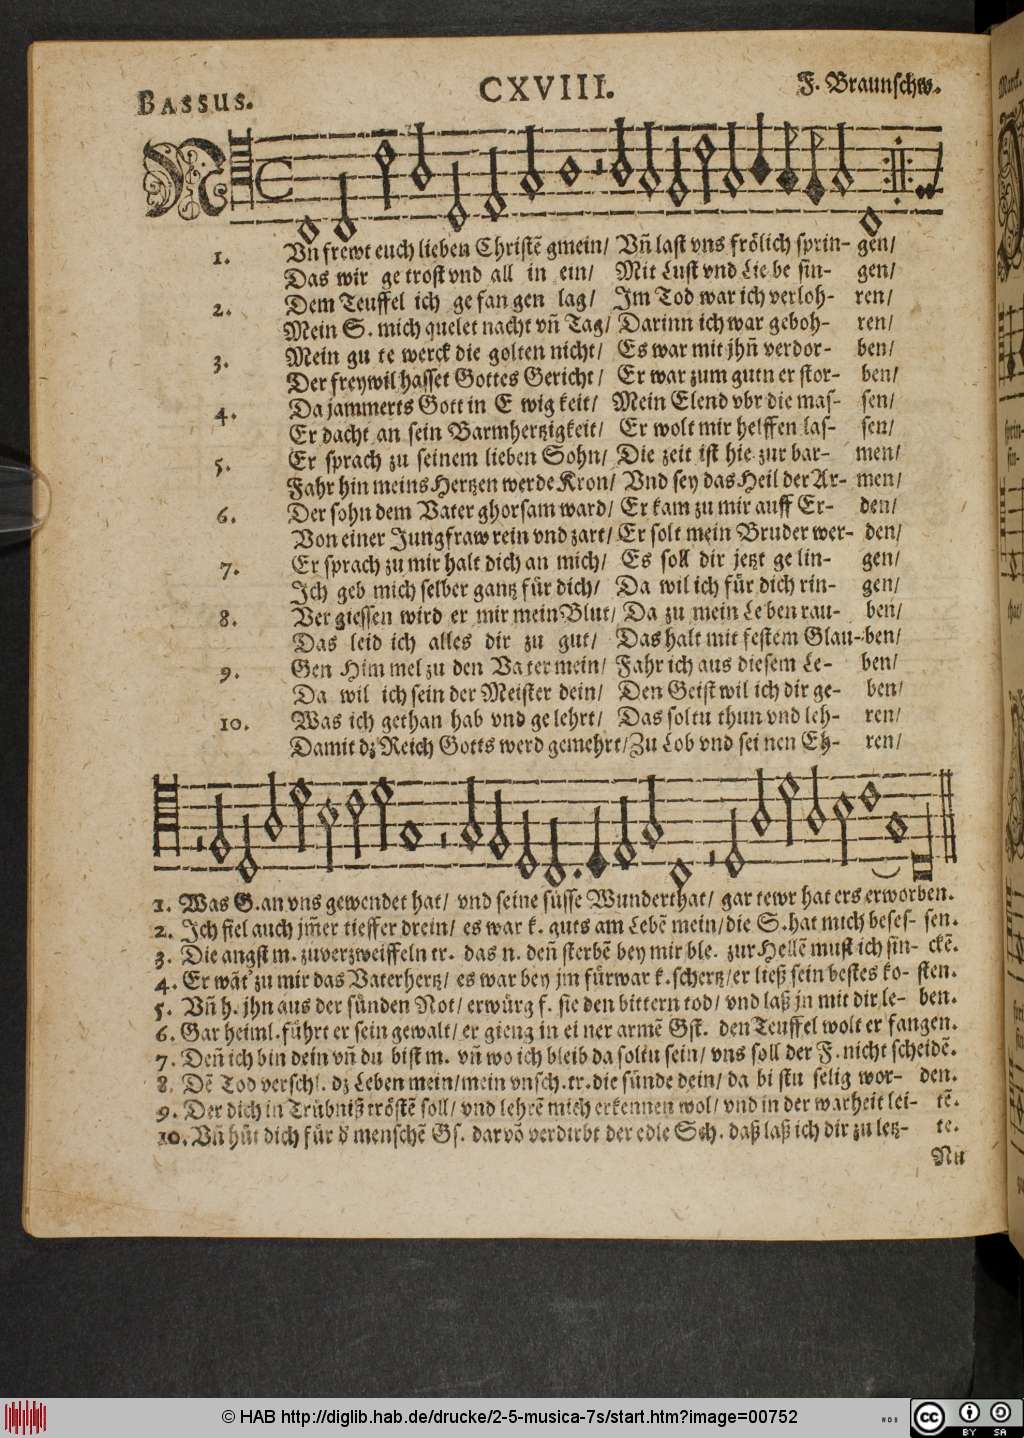 BASSUS. CXVIII. F. Braunschw.
NVñ frewt euch lieben Christẽ gmein/ Vñ last vns frölich sprin- gen/
1.
Das wir ge trost vnd all in ein/ Mit Lust vnd Lie be sin- gen/
2. Dem Teuffel ich ge fan gen lag/ Im Tod war ich verloh- ren/
Mein S. mich quelet nacht vñ Tag/ Darinn ich war geboh- ren/
3. Mein gu te werck die golten nicht/ Es war mit jhñ verdor- ben/
Der freywil hasset Gottes Gericht/ Er war zum gutn er stor- ben/
4. Da jammerts Gott in E wig keit/ Mein Elend vbr die mas- sen/
Er dacht an sein Barmhertzigkeit/ Er wolt mir helffen las- sen/
5. Er sprach zu seinem lieben Sohn/ Die zeit ist hie zur bar- men/
Fahr hin meins Hertzen werde Kron/ Vnd sey das Heil der Ar- men/
6. Der sohn dem Vater ghorsam ward/ Er kam zu mir auff Er- den/
Von einer Jungfraw rein vnd zart/ Er solt mein Bruder wer- den/
7. Er sprach zu mir halt dich an mich/ Es soll dir jetzt ge lin- gen/
Ich geb mich selber gantz für dich/ Da wil ich für dich rin- gen/
8. Ver giessen wird er mir mein Blut/ Da zu mein Le ben rau- ben/
Das leid ich alles dir zu gut/ Das halt mit festem Glau- ben/
9. Gen Him mel zu den Va ter mein/ Fahr ich aus diesem Le- ben/
Da wil ich sein der Meister dein/ Den Geist wil ich dir ge- ben/
10. Was ich gethan hab vnd ge lehrt/ Das soltu thun vnd leh- ren/
Damit dz Reich Gotts werd gemehrt/ Zu Lob vnd sei nen Eh- ren/
1. Was G. an vns gewendet hat/ vnd seine süsse Wunderthat/ gar tewr hat ers erworben.
2. Ich fiel auch jm̃er tieffer drein/ es war k. guts am Lebẽ mein/ die S. hat mich beses- sen.
3. Die angst m. zuverzweiffeln tr. das n. deñ sterbẽ bey mir ble. zur Hellẽ must ich sin- ckẽ.
4. Er wãt zu mir das Vaterhertz/ es war bey jm fürwar k. schertz/ er ließ sein bestes ko- sten.
5. Vñ h. jhn aus der sünden Not/ erwürg f. sie den bittern tod/ vnd laß jn mit dir le- ben.
6. Gar heiml. führt er sein gewalt/ er gieng in ei ner armẽ Gst. den Teuffel wolt er fangen.
7. Deñ ich bin dein vñ du bist m. vñ wo ich bleib da soltu sein/ vns soll der F. nicht scheidẽ.
8. Dẽ Tod verschl. dz Leben mein/ mein vnsch. tr. die sünde dein/ da bi stu selig wor- den.
9. Der dich in Trübniß tröstẽ soll/ vnd lehrẽ mich erkennen wol/ vnd in der warheit lei- tẽ.
10. Vñ hüt dich für d' menschẽ Gs. darvõ verdirbt der edle Sch. daß laß ich dir zu letz- te.
Nu
© HAB http://diglib.hab.de/drucke/2-5-musica-7s/start.htm?image=00752
WDB
cc BY SA